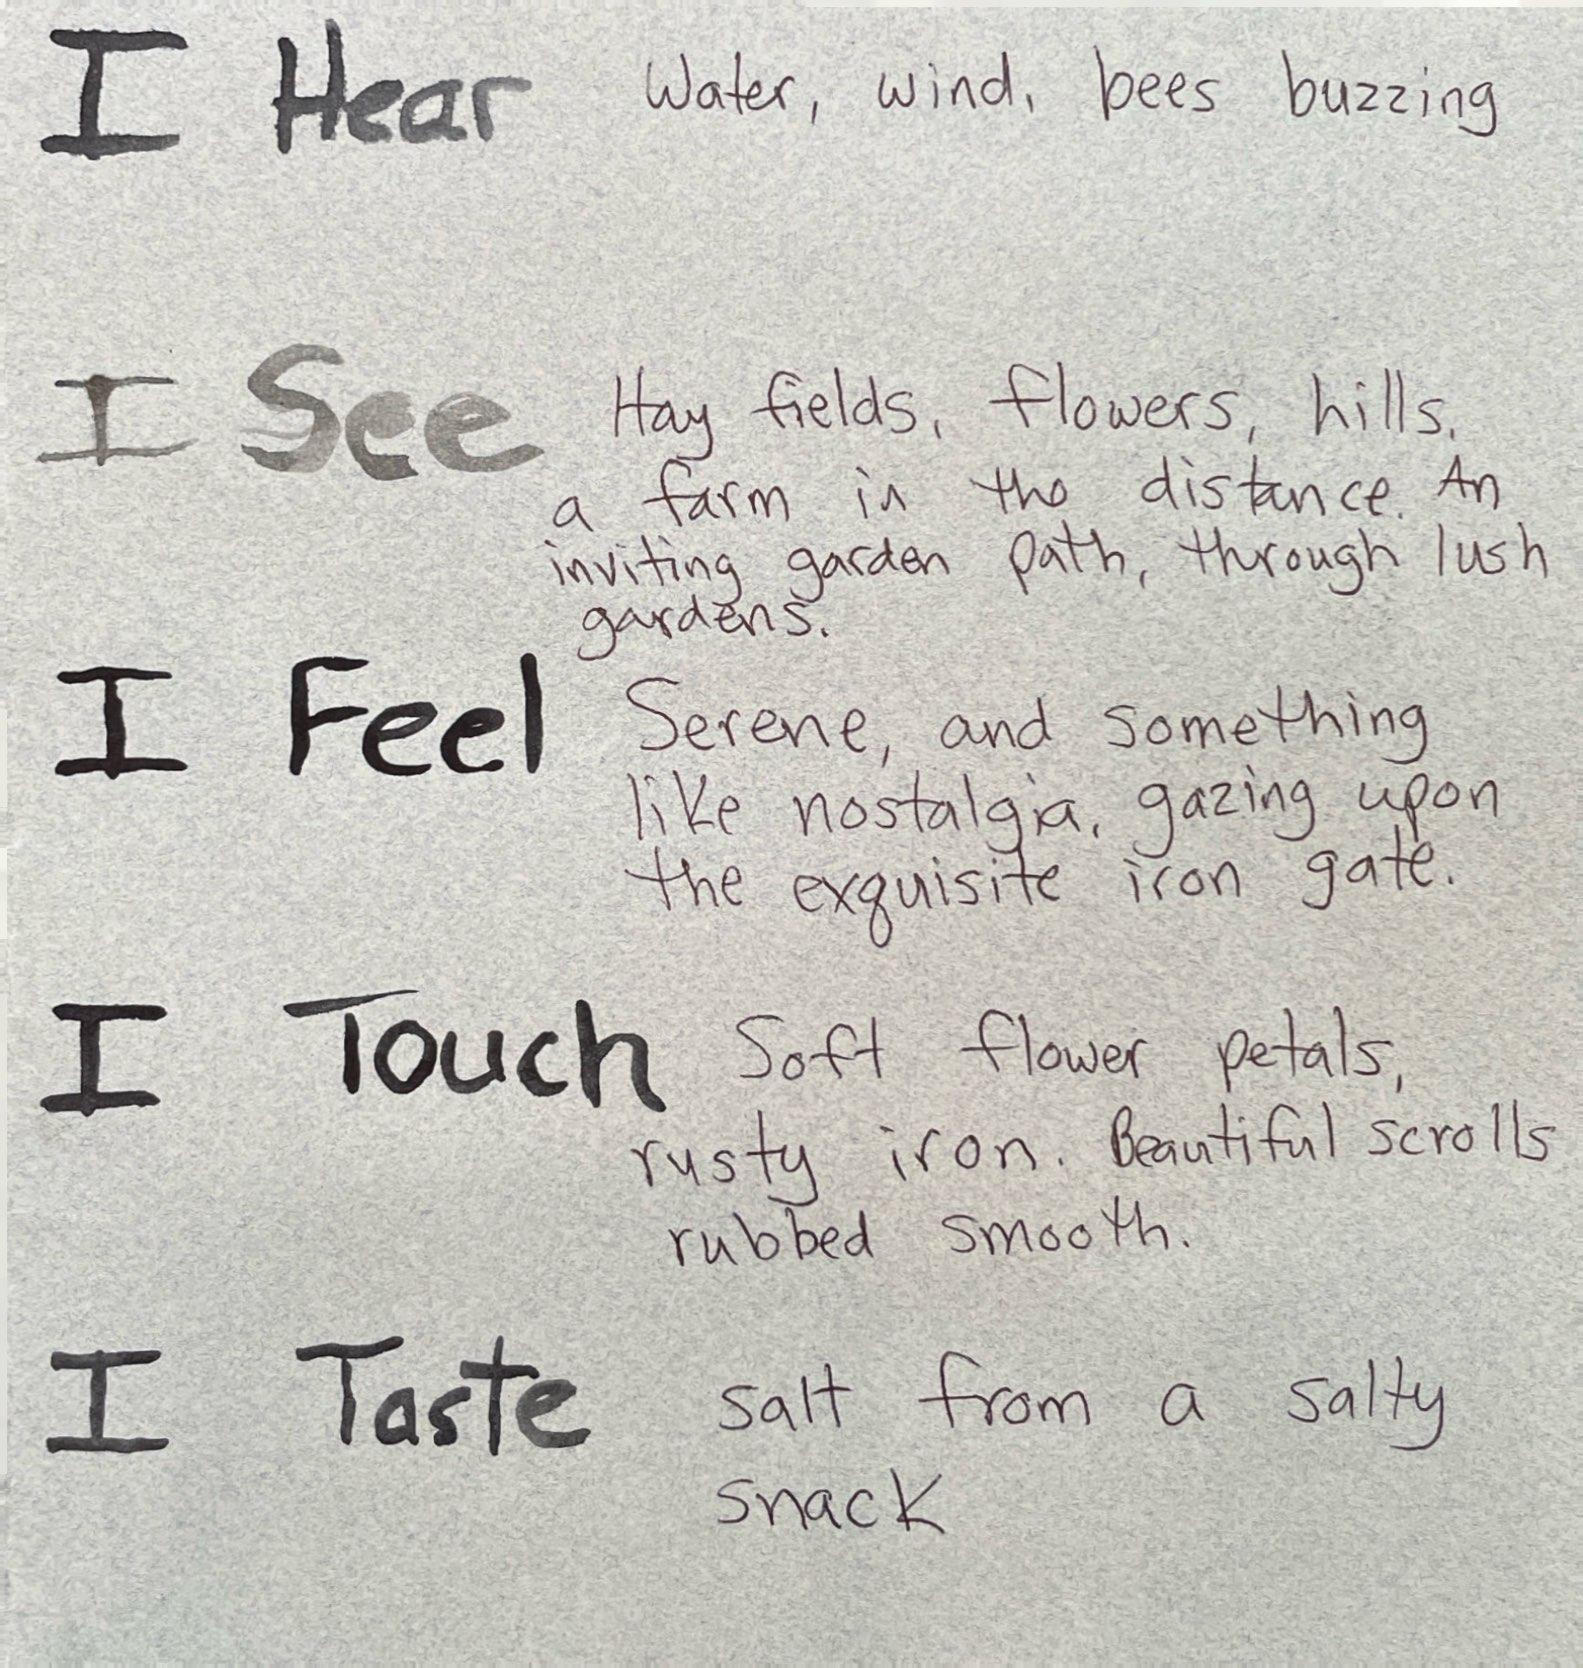 I Hear Water, wind, bees buzzing
I See Hay fields, flowers, hills,
a farm in the distance. An
inviting garden path, through lush
gardens.
I Feel Serene, and something
like nostalgia, gazing upon
the exquisite iron gate.
I Touch Soft flower petals,
rusty iron. Beautiful scrolls
rubbed smooth.
I Taste salt from a salty
snack